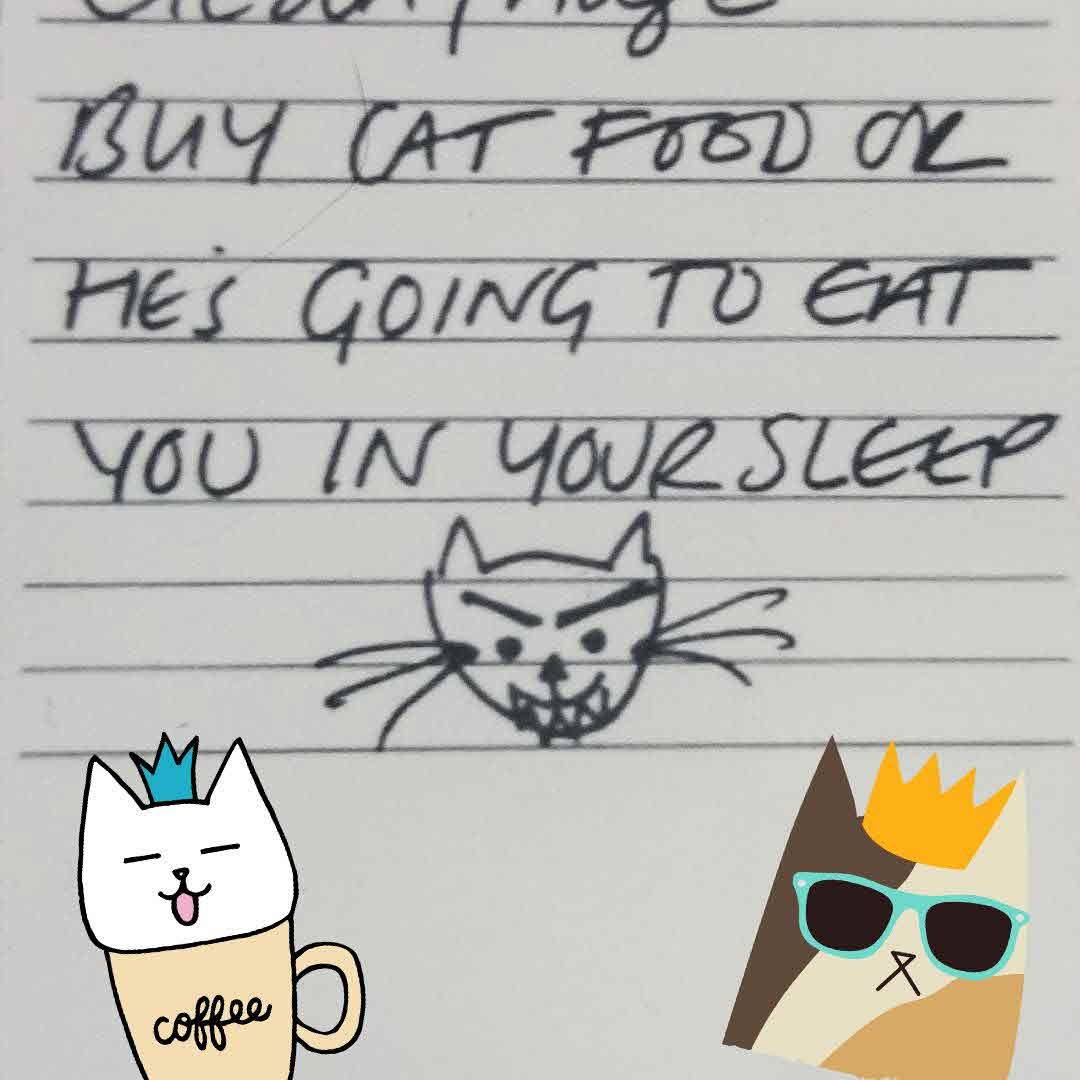 BUY CAT FOOD OR
HE'S GOING TO EAT
YOU IN YOUR SLEEP
coffee